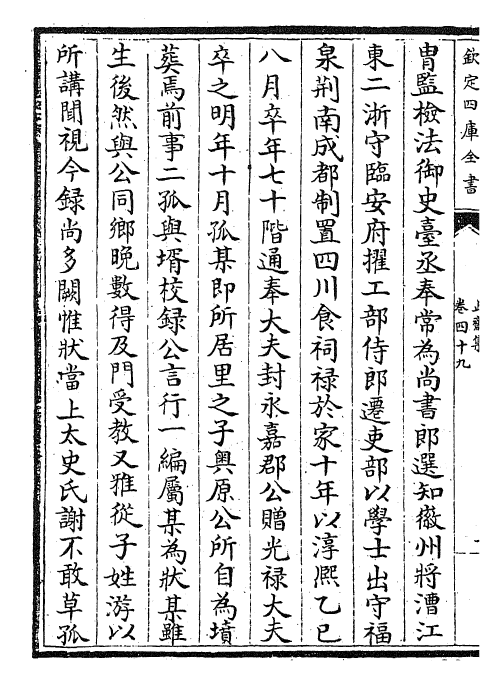 欽定四庫全書
止齋集
卷四十九
胄監檢法御史臺丞奉常為尚書郎選知徽州將漕江
東二浙守臨安府擢工部侍郎遷吏部以學士出守福
泉荆南成都制置四川食祠禄於家十年以淳熙乙巳
八月卒年七十階通奉大夫封永嘉郡公贈光禄大夫
卒之明年十月孤某即所居里之子輿原公所自為墳
葬焉前事二孤與壻校録公言行一編屬某為狀某雖
生後然與公同鄉晚數得及門受教又雅從子姓游以
所講聞視今録尚多闕惟狀當上太史氏謝不敢草孤